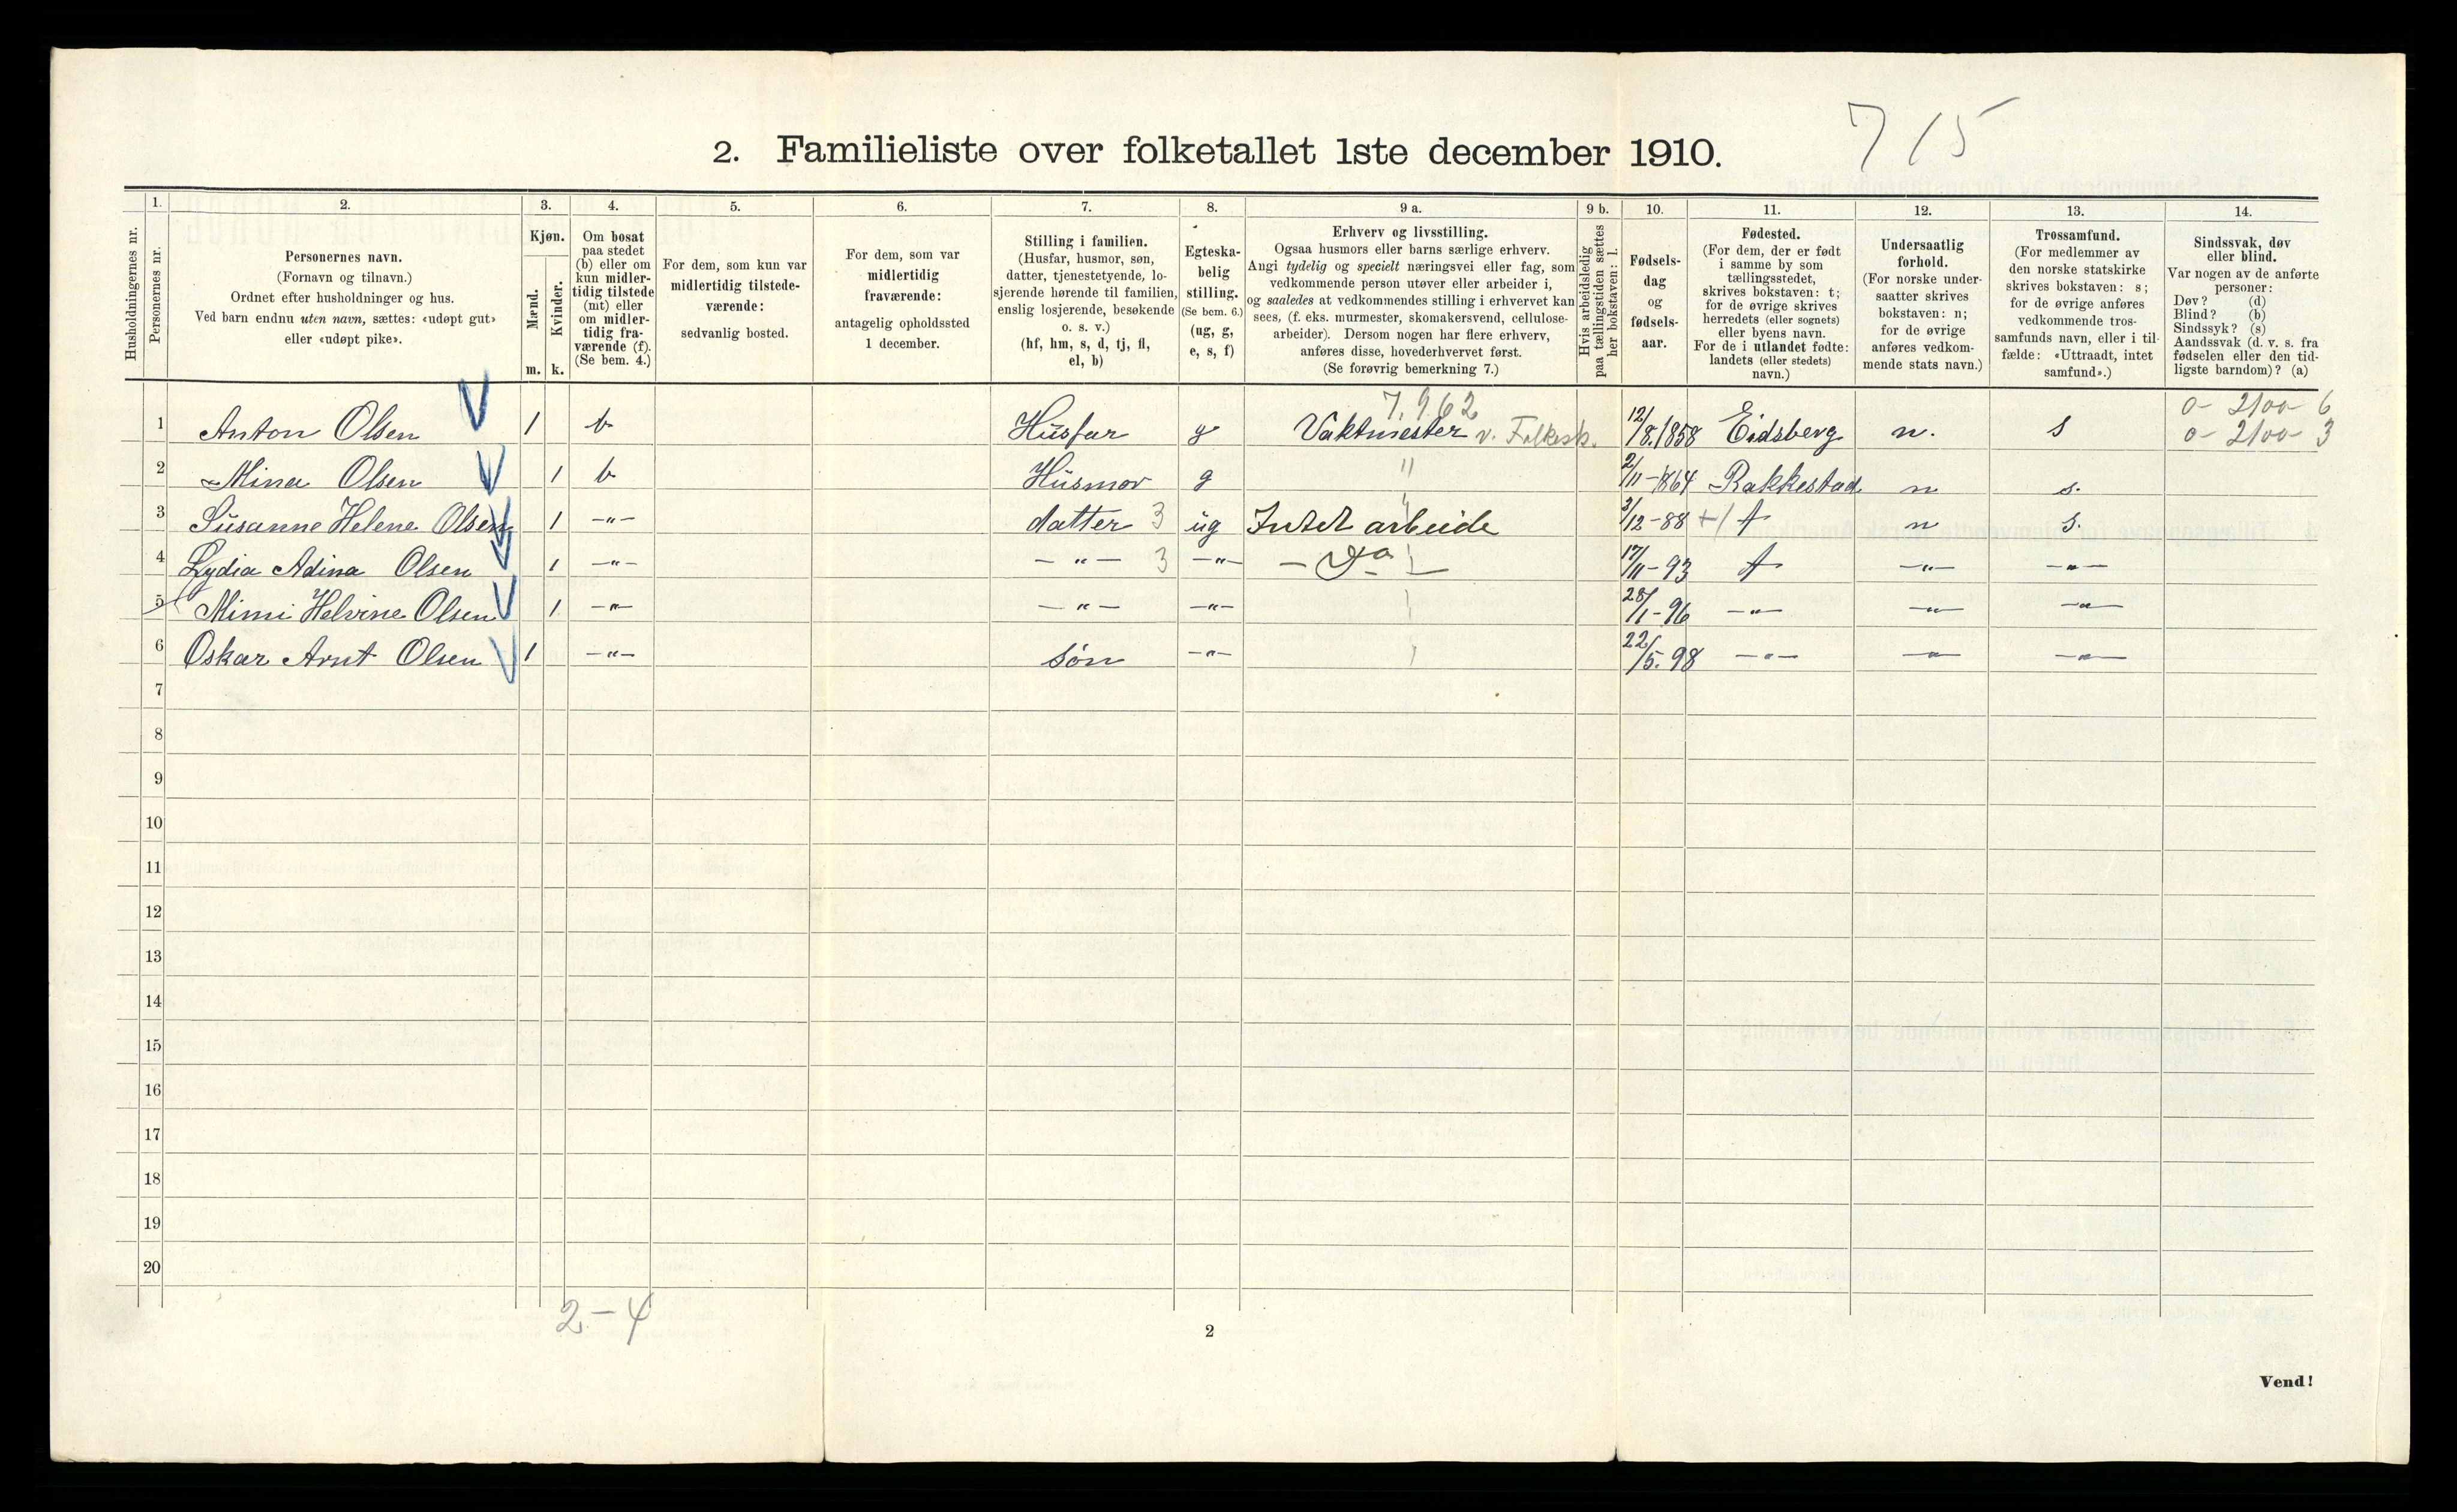 7 15
2. Familieliste over folketallet 1ste december 1910.
Husholdningernes nr.
1. Personernes nr.
2. Personernes navn. (Fornavn og tilnavn.) Ordnet efter husholdninger og hus. Ved barn endnu uten navn, sættes: «udøpt gut» eller «udøpt pike».
3. Kjøn. Mænd. m. Kvinder. k.
4. Om bosat paa stedet (b) eller om kun midlertidig tilstede (mt) eller om midlertidig fraværende (f). (Se bem. 4.)
5. For dem, som kun var midlertidig tilstedeværende: sedvanlig bosted.
6. For dem, som var midlertidig fraværende: antagelig opholdssted 1 december.
7. Stilling i familien. (Husfar, husmor, søn, datter, tjenestetyende, losjerende hørende til familien, enslig losjerende, besøkende o. s. v.) (hf, hm, s, d, tj, fl, el, b)
8. Egteskabelig stilling. (Se bem. 6.) (ug, g, e, s, f)
9 a. Erhverv og livsstilling. Ogsaa husmors eller barns særlige erhverv. Angi tydelig og specielt næringsvei eller fag, som vedkommende person utøver eller arbeider i, og saaledes at vedkommendes stilling i erhvervet kan sees, (f. eks. murmester, skomakersvend, cellulosearbeider). Dersom nogen har flere erhverv, anføres disse, hovederhvervet først. (Se forøvrig bemerkning 7.)
9 b. Hvis arbeidsledig paa tællingstiden sættes her bokstaven: l.
10. Fødselsdag og fødselsaar.
11. Fødested. (For dem, der er født i samme by som tællingsstedet, skrives bokstaven: t; for de øvrige skrives herredets (eller sognets) eller byens navn. For de i utlandet fødte: landets (eller stedets) navn.)
12. Undersaatlig forhold. (For norske undersaatter skrives bokstaven: n; for de øvrige anføres vedkommende stats navn.)
13. Trossamfund. (For medlemmer av den norske statskirke skrives bokstaven: s; for de øvrige anføres vedkommende trossamfunds navn, eller i tilfælde: «Uttraadt, intet samfund».)
14. Sindssvak, døv eller blind. Var nogen av de anførte personer: Døv? (d) Blind? (b) Sindssyk? (s) Aandssvak (d. v. s. fra fødselen eller den tidligste barndom)? (a)
7.962 0 - 2100 - 6
1 Anton Olsen 1 b Husfar g Vaktmester v. Folkesk. 12/8.1858 Eidsberg n. s 0 - 2100 - 3
2 Mina Olsen 1 b Husmor g " 2/11-1864 Rakkestad n s.
3 Susanne Helene Olsen 1 -"- datter 3 ug Intet arbeide 3/12-88 t n s.
4 Lydia Adina Olsen 1 -"- -"- 3 -"- - Do - 17/11-93 t -"- -"-
5 Mimi Helvine Olsen 1 -"- -"- -"- 28/1-96 -"- -"- -"-
6 Oskar Arnt Olsen 1 -"- søn -"- 22/5.98 -"- -"- -"-
7
8
9
10
11
12
13
14
15
16
17
18
19
20
2-4
2
Vend!